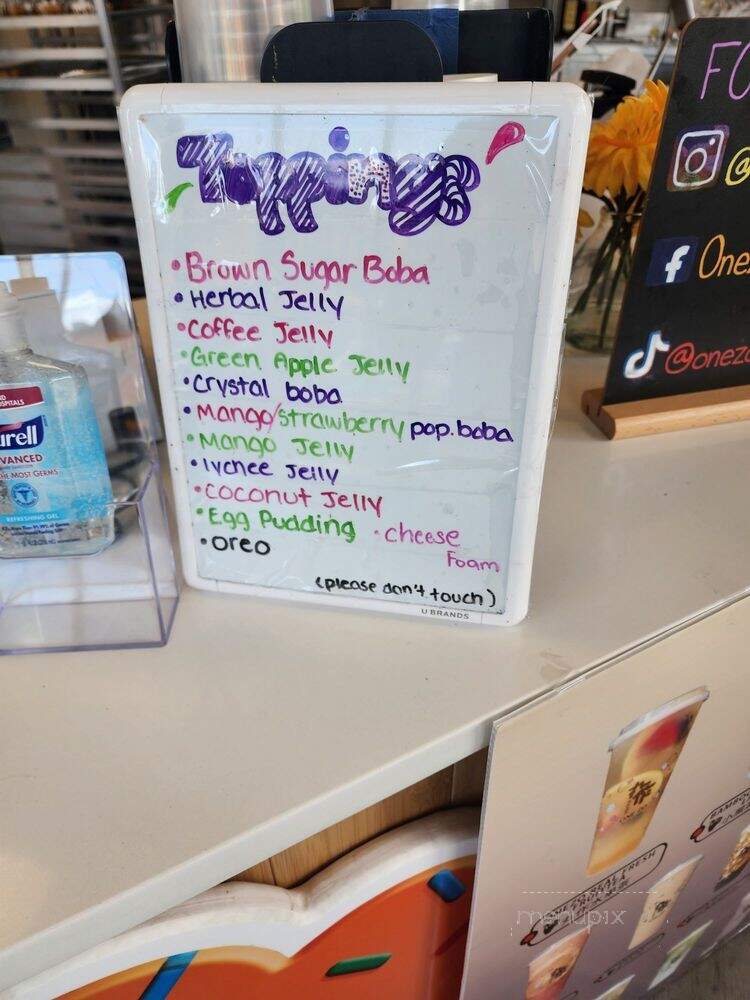 Toppings
• Brown Sugar Boba
• Herbal Jelly
• Coffee Jelly
• Green Apple Jelly
• Crystal boba
• Mango/strawberry pop.boba
• Mango Jelly
• lychee Jelly
• Coconut Jelly
• Egg Pudding • cheese Foam
• oreo
(please don't touch)
U BRANDS
ADVANCED
REFRESHING GEL
@
One
@onez
REAL FRESH
menupix